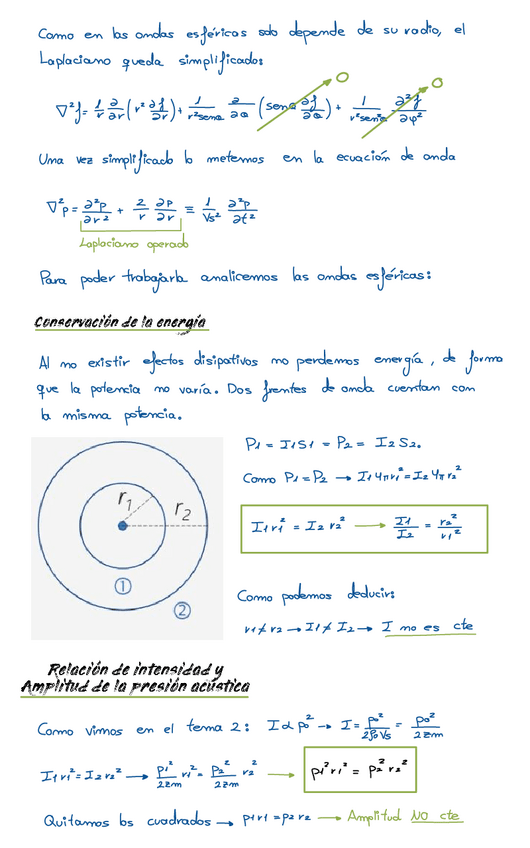 Como en las ondas esféricas solo depende de su radio, el
Laplaciano queda simplificado:
∇²f = 1/r ∂/∂r (r² ∂f/∂r) + 1/r²senθ ∂/∂θ (senθ ∂f/∂θ) + 1/r²sen²θ ∂²f/∂φ²
0
0
Una vez simplificado lo metemos en la ecuación de onda
∇²p = ∂²p/∂r² + 2/r ∂p/∂r ≡ 1/Vs² ∂²p/∂t²
Laplaciano operado
Para poder trabajarla analicemos las ondas esféricas:
Conservación de la energía
Al no existir efectos disipativos no perdemos energía, de forma
que la potencia no varía. Dos frentes de onda cuentan con
la misma potencia.
r₁
r₂
①
②
P1 = I1S1 = P2 = I2S2.
Como P1 = P2 → I1 4πr1² = I2 4πr2²
I1r1² = I2r2² → I1/I2 = r2²/r1²
Como podemos deducir:
r1≠r2 → I1≠I2 → I no es cte
Relación de intensidad y
Amplitud de la presión acústica
Como vimos en el tema 2: I α p0² → I = p0²/2ρ0Vs = p0²/2zm
I1r1² = I2r2² → p1²/2zm r1² = p2²/2zm r2² → p1²r1² = p2²r2²
Quitamos los cuadrados → p1r1 = p2r2 → Amplitud NO cte